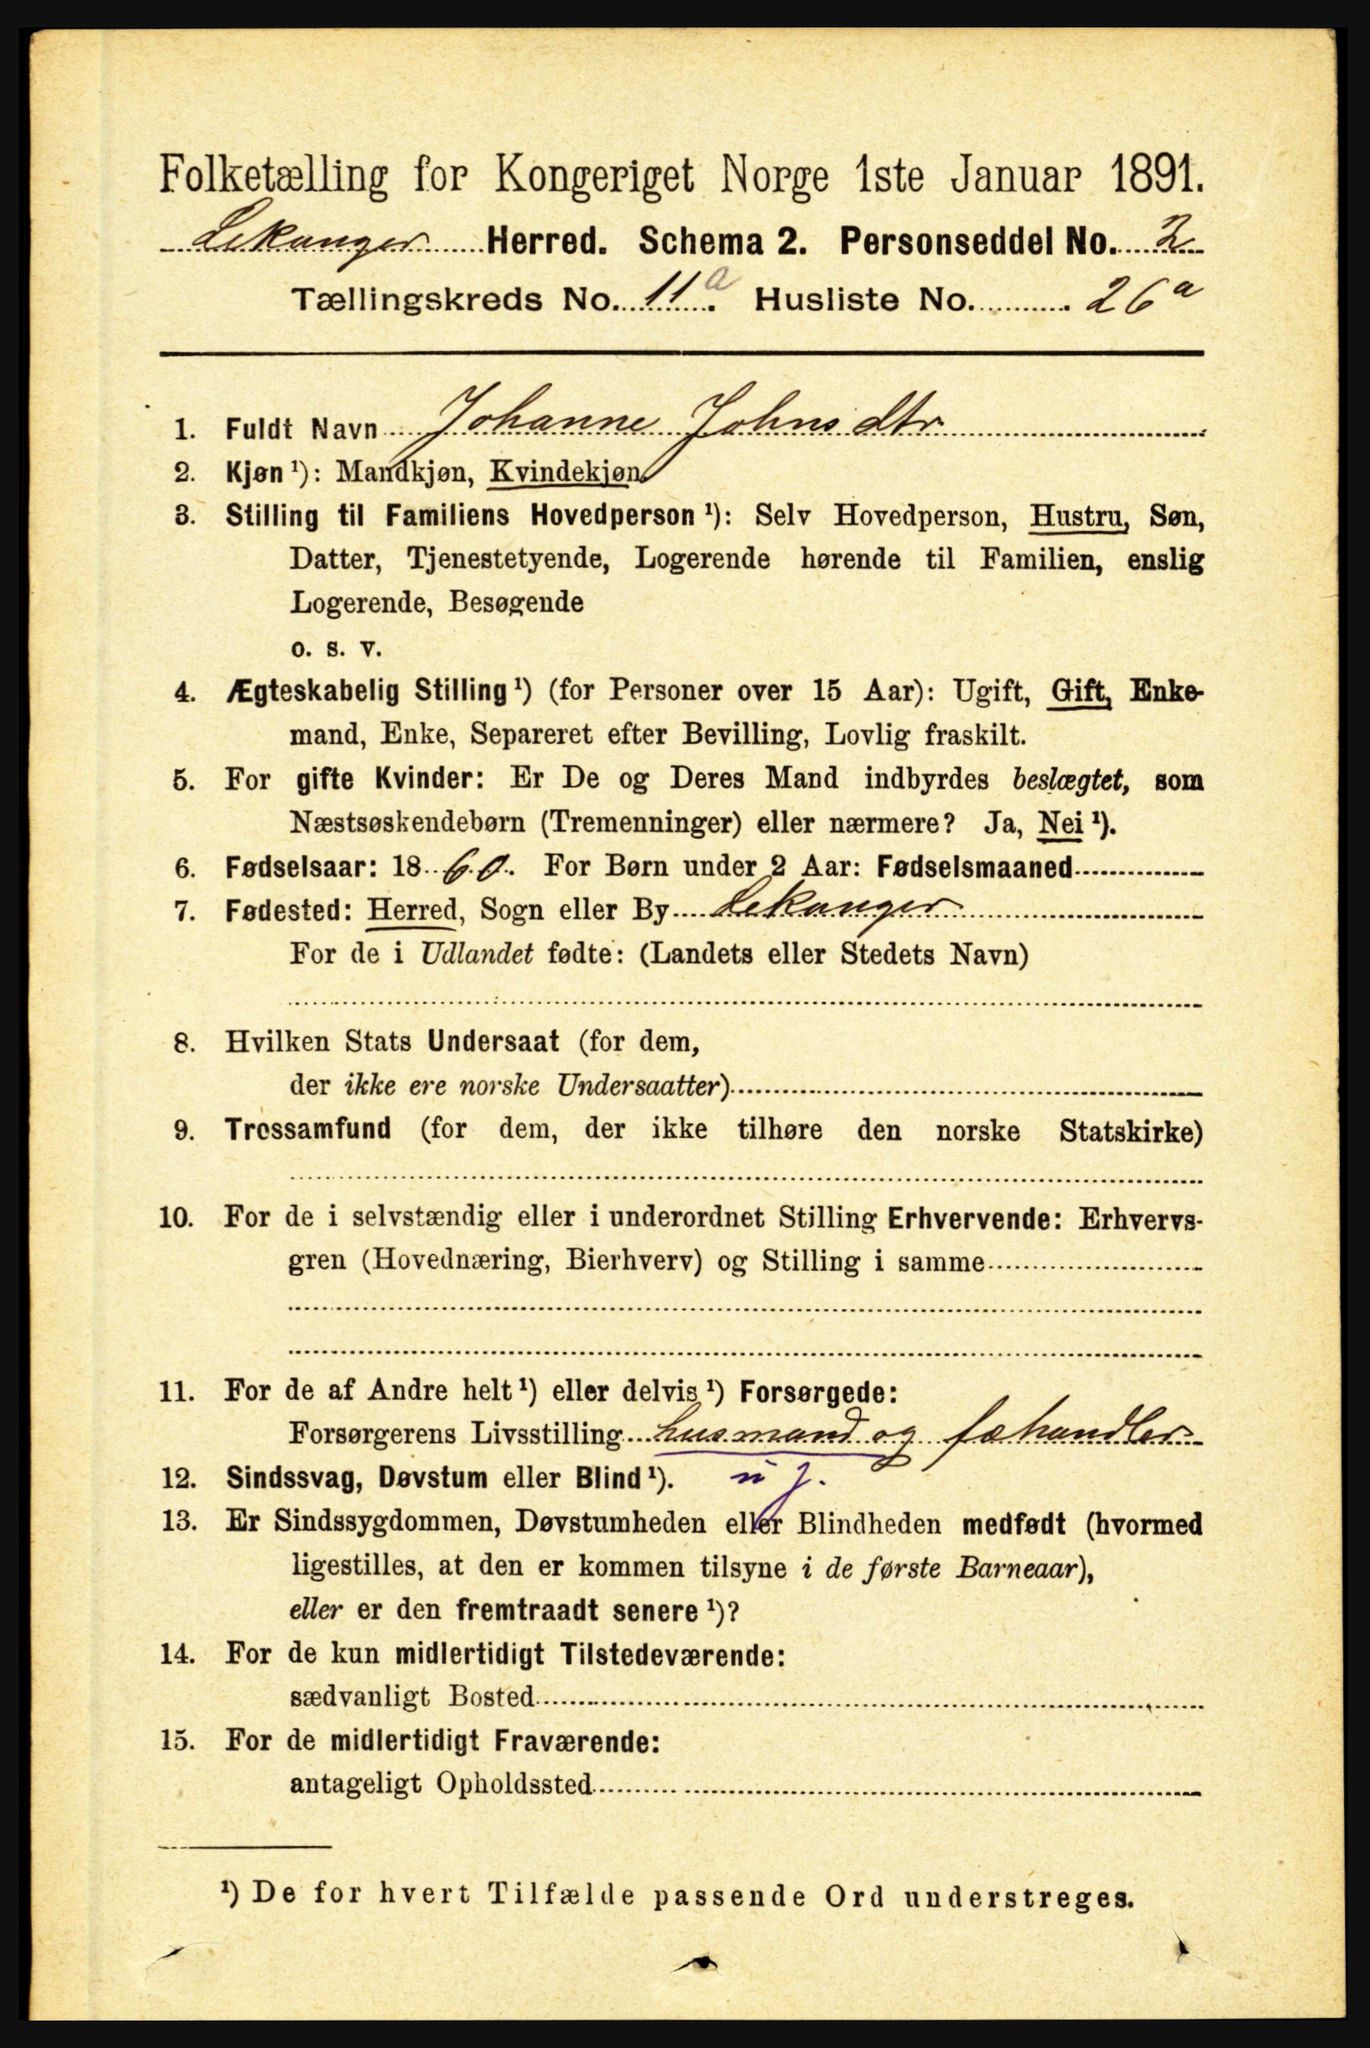 Folketælling for Kongeriget Norge 1ste Januar 1891.
Lekanger Herred. Schema 2. Personseddel No. 2
Tællingskreds No. 11 a. Husliste No. 26 a
1. Fuldt Navn Johanne Johnsdtr
2. Kjøn ¹): Mandkjøn, Kvindekjøn.
3. Stilling til Familiens Hovedperson ¹): Selv Hovedperson, Hustru, Søn,
Datter, Tjenestetyende, Logerende hørende til Familien, enslig
Logerende, Besøgende
o. s. v.
4. Ægteskabelig Stilling ¹) (for Personer over 15 Aar): Ugift, Gift, Enke-
mand, Enke, Separeret efter Bevilling, Lovlig fraskilt.
5. For gifte Kvinder: Er De og Deres Mand indbyrdes beslægtet, som
Næstsøskendebørn (Tremenninger) eller nærmere? Ja, Nei ¹).
6. Fødselsaar: 1860. For Børn under 2 Aar: Fødselsmaaned
7. Fødested: Herred, Sogn eller By Lekanger
For de i Udlandet fødte: (Landets eller Stedets Navn)
8. Hvilken Stats Undersaat (for dem,
der ikke ere norske Undersaatter)
9. Trossamfund (for dem, der ikke tilhøre den norske Statskirke)
10. For de i selvstændig eller i underordnet Stilling Erhvervende: Erhvervs-
gren (Hovednæring, Bierhverv) og Stilling i samme
11. For de af Andre helt ¹) eller delvis ¹) Forsørgede:
Forsørgerens Livsstilling husmand og fæhandler
12. Sindssvag, Døvstum eller Blind ¹).
13. Er Sindssygdommen, Døvstumheden eller Blindheden medfødt (hvormed
ligestilles, at den er kommen tilsyne i de første Barneaar),
eller er den fremtraadt senere ¹)?
14. For de kun midlertidigt Tilstedeværende:
sædvanligt Bosted
15. For de midlertidigt Fraværende:
antageligt Opholdssted
¹) De for hvert Tilfælde passende Ord understreges.